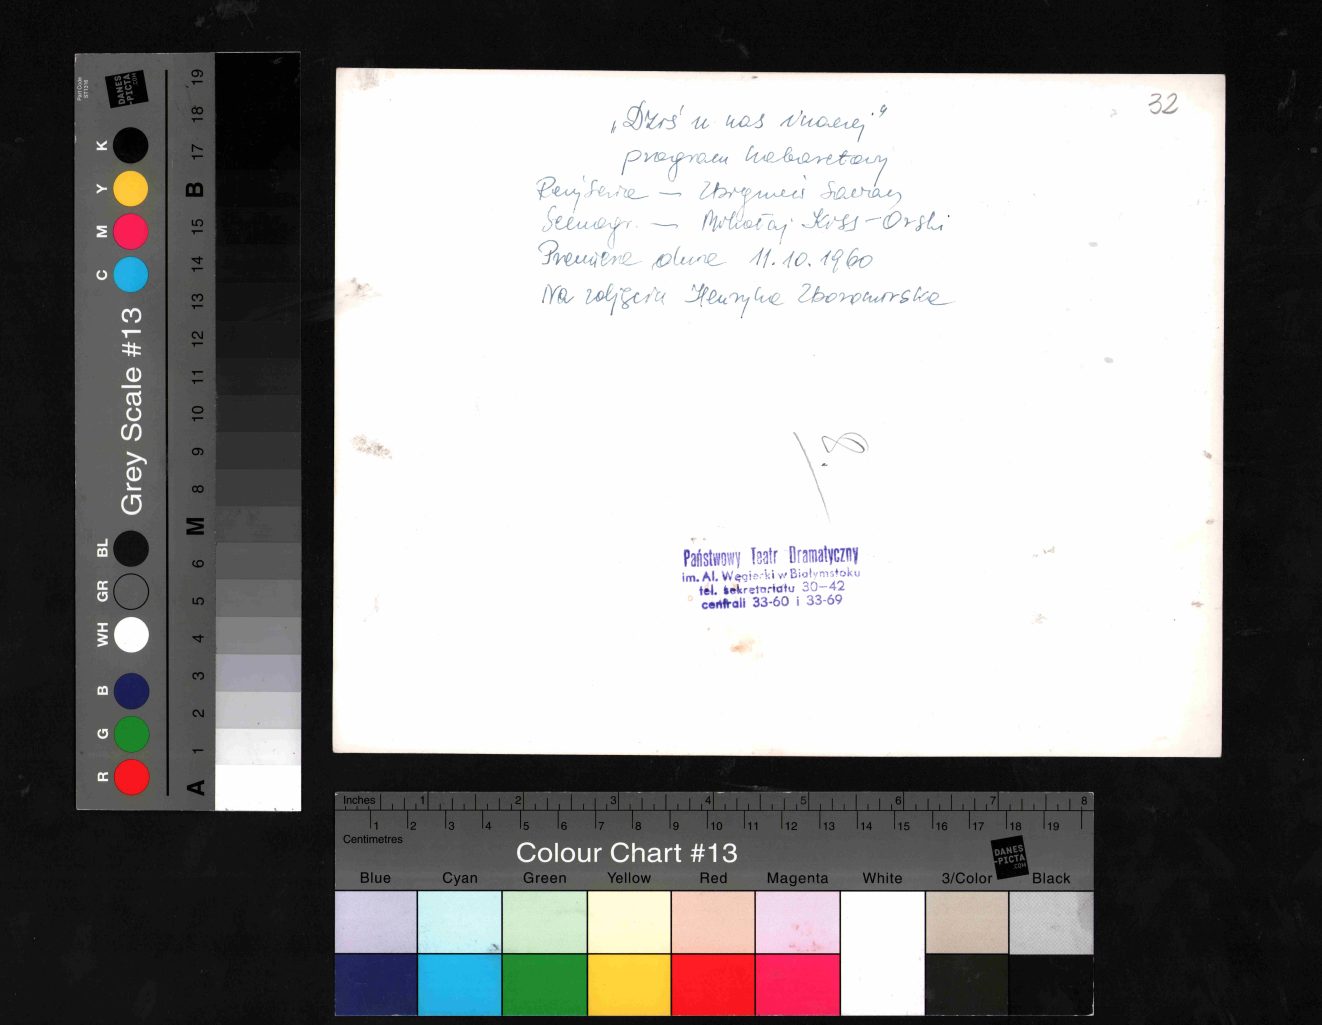 32
„Dziś u nas inaczej"
program kabaretowy
Reżyseria — Zbigniew
Scenogr. — Mikołaj Kiss-Orski
Premiera dnia 11.10.1960
Na zdjęciu Henryka Zboromirska
Państwowy Teatr Dramatyczny
im. Al. Węgierki w Białymstoku
tel. sekretariatu 30-42
centrali 33-60 i 33-69
Part Code
ST1316
DANES
-PICTA
.COM
Grey Scale #13
K Y M C
BL GR WH B G R
19 18 17 B 15 14 13 12 11 10 9 8 M 6 5 4 3 2 1 A
Inches 1 2 3 4 5 6 7 8
1 2 3 4 5 6 7 8 9 10 11 12 13 14 15 16 17 18 19
Centimetres
Colour Chart #13
DANES
-PICTA
.COM
Blue Cyan Green Yellow Red Magenta White 3/Color Black